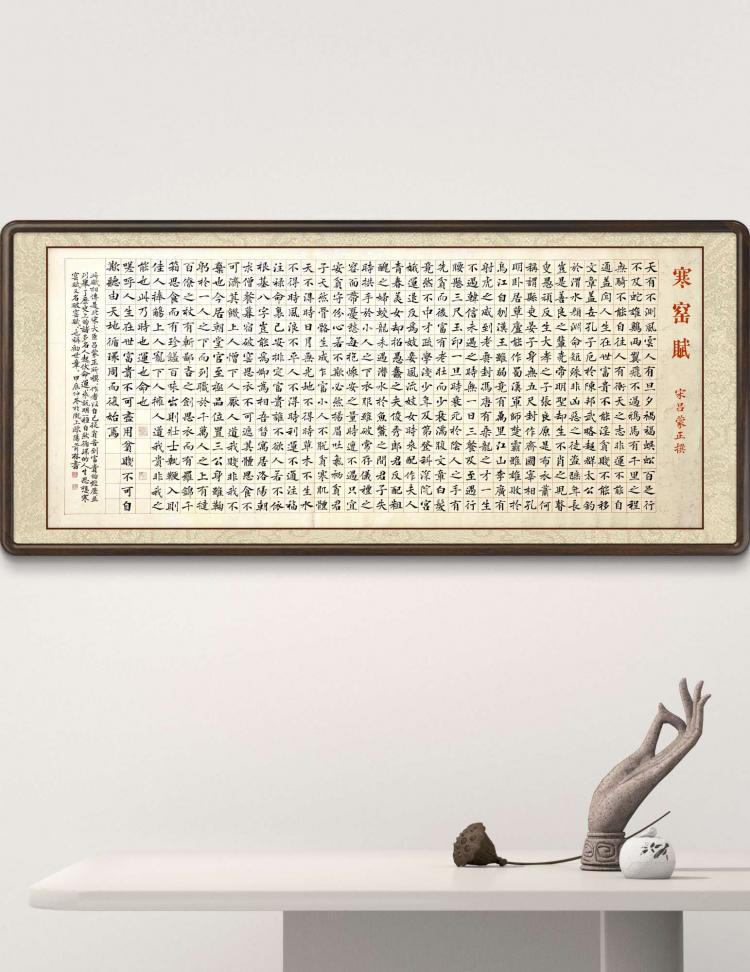 寒窑賦
宋 吕蒙正 撰
天有不測風雲人有旦夕禍福蜈蚣百足行
不及蛇雄鷄兩翼飛不過鴉馬有千里之程
無騎不能自往人有衝天之志非運不能自
通盖聞人生在世富貴不能淫貧賤不能移
文章盖世孔子厄於陳邦武略超群太公釣
於渭水顏渊命短殊非凶惡之徒盗蹠年長
豈是善良之輩堯帝明聖却生不肖之兒瞽
叟愚頑反生大孝之子張良原是布衣蕭何
稱謂縣吏晏子身無五尺封作齊國宰相孔
明卧居草廬能作蜀漢軍師楚霸雖雄敗於
烏江自刎漢王雖弱竟有萬里江山李廣有
射虎之威到老無封馮唐有乘龍之才一生
不遇韓信未遇之時無一日三餐及至遇行
腰懸三尺玉印一旦時衰死於陰人之手有
先貧而後富有老壯而少衰滿腹文章白髮
竟然不中才疏學淺少年及第登科深院宫
娥運退反為妓妾風流妓女時來配作夫人
青春美女却招愚蠢之夫俊秀郎君反配粗
醜之婦蛟龍未遇潜水於魚鱉之間君子失
時拱手於小人之下衣服雖破常存儀禮之
容面帶憂愁每抱懷安之量時遭不遇只宜
安貧守份心若不欺必然揚眉吐氣初貧君
子天然骨骼生成乍富小人不脱貧寒肌體
天不得時日月無光地不得時草木不生水
不得時風浪不平人不得時利運不通注福
注禄命裏已安排定富貴誰不欲人若不依
根基八字豈能為卿為相吾昔寓居洛陽朝
求僧餐暮宿破窑思衣不可遮其體思食不
可濟其饑上人憎下人厭人道我賤非我不
棄也今居朝堂官至極品位置三公身雖鞠
躬於一人之下而列職於千萬人之上有撻
百僚之杖有斬鄙吝之劍思衣而有羅錦千
箱思食而有珍饈百味出則壯士執鞭入則
佳人捧觴上人寵下人擁人道我貴非我之
能也此乃時也運也命也
嗟呼人生在世富貴不可盡用貧賤不可自
欺聽由天地循環周而復始焉
此賦相傳是北宋大臣吕蒙正所撰作者以自己從貧苦到富貴的經歷並
列舉了歷史上的諸多名人起伏命運来説明自然循環的人生思想寒
窑賦又名破窑賦也稱勸世章 甲辰仲冬於滬上 書